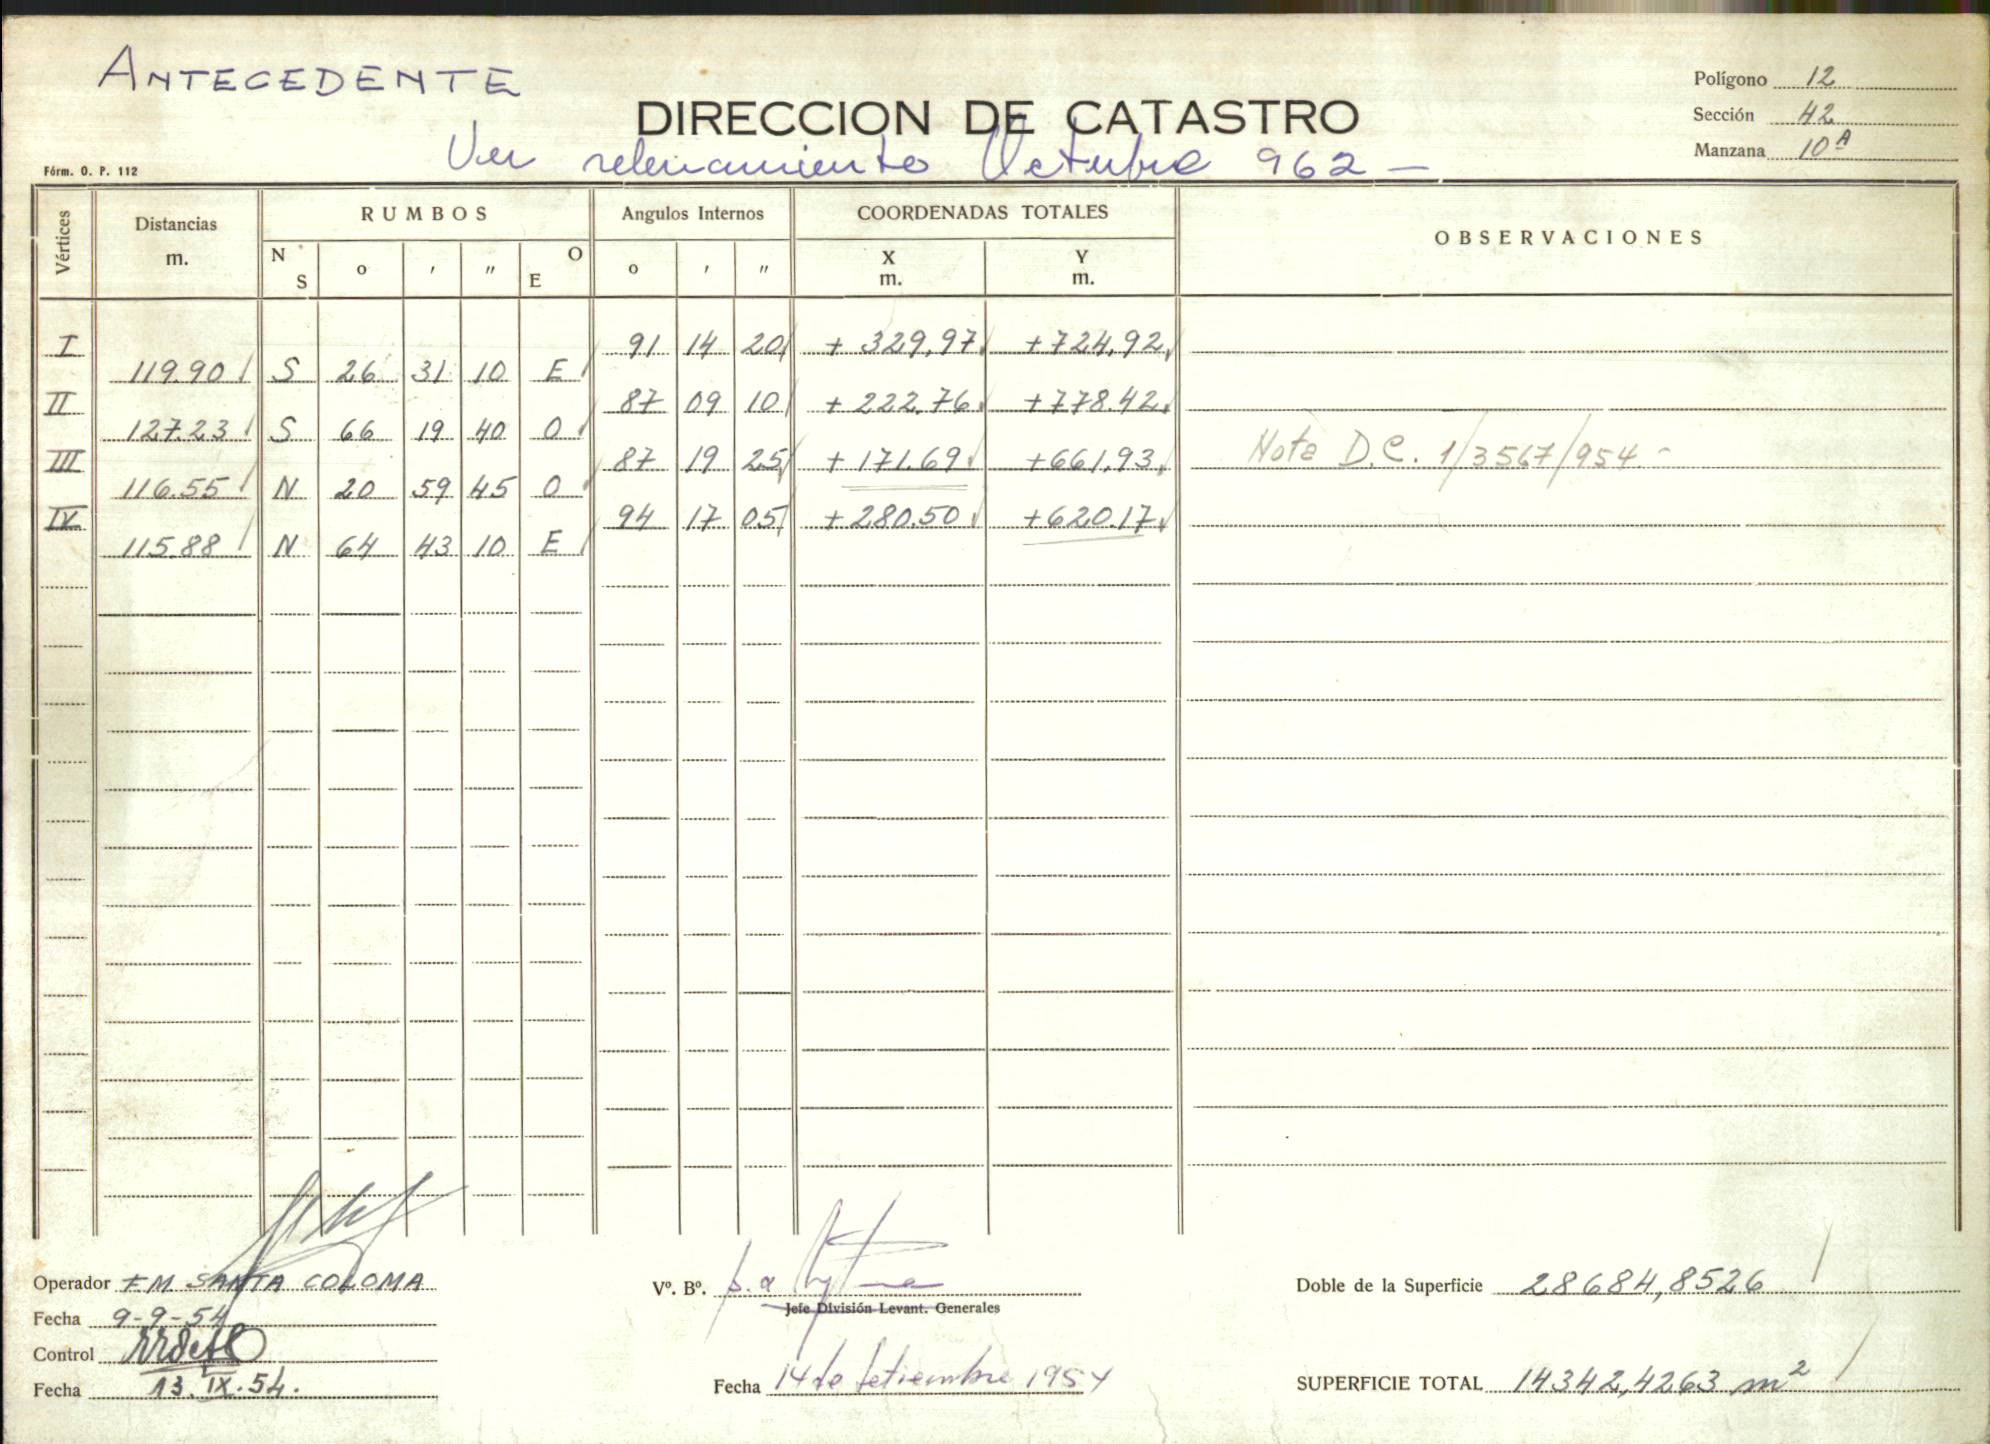 ANTECEDENTE
Polígono 12
DIRECCION DE CATASTRO
Sección 42
Ver relevamiento Octubre 962 —
Manzana 10A
Fórm. O. P. 112
Vértices
Distancias m.
RUMBOS
Angulos Internos
COORDENADAS TOTALES
OBSERVACIONES
N S o ' " O E o ' " X m. Y m.
I 91 14 20 + 329,97 +724,92
119.90 S 26 31 10 E
II 87 09 10 + 222.76 +778.42
127.23 S 66 19 40 O
III 87 19 25 + 171.69 +661,93 Nota D.C. 1/3567/954.-
116.55 N 20 59 45 O
IV 94 17 05 + 280.50 +620.17
115.88 N 64 43 10 E
Operador F.M. SANTA COLOMA
Vº. Bº. p.a
Doble de la Superficie 28684,8526
Jefe División Levant. Generales
Fecha 9-9-54
Control
Fecha 13.IX.54.
Fecha 14 de Setiembre 1954
SUPERFICIE TOTAL 14342,4263 m2